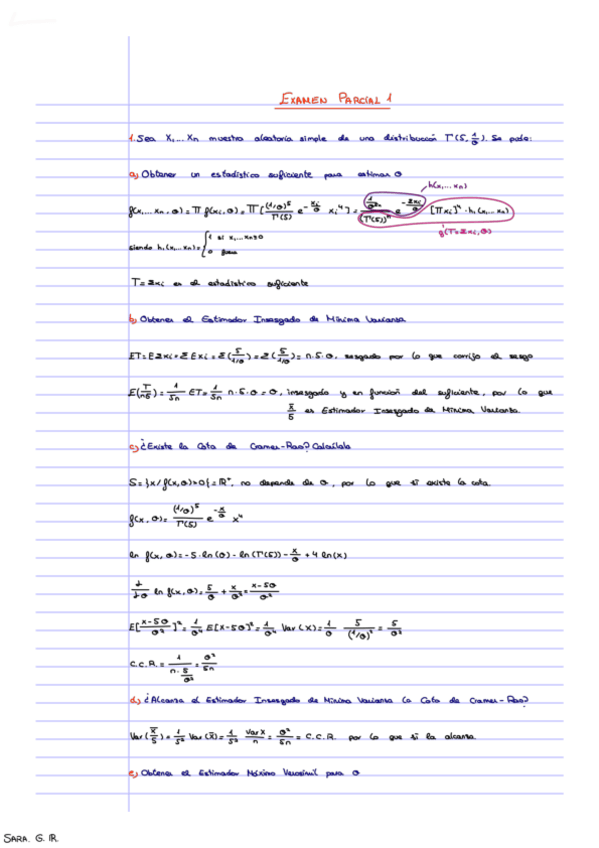 EXAMEN PARCIAL 1
1. Sea X₁...Xn muestra aleatoria simple de una distribución Γ(5, 1/θ). Se pide:
a) Obtener un estadístico suficiente para estimar θ
h(x₁...xn)
f(x₁...xn, θ) = Π f(xi, θ) = Π [(1/θ)⁵/Γ(5) e^(-xi/θ) xi⁴] = e^(-Σxi/θ) [Πxi]⁴ · h₁(x₁...xn)
g(T=Σxi, θ)
siendo h₁(x₁...xn) = { 1 si x₁...xn≥0
0
T = Σxi es el estadístico suficiente
b) Obtener el Estimador Insesgado de Mínima Varianza
ET = EΣxi = ΣExi = Σ(5/(1/θ)) = Σ(5/(1/θ)) = n·5·θ, sesgado por lo que corrijo el sesgo
E(T/n5) = 1/5n ET = 1/5n n·5·θ = θ, insesgado y en función del suficiente, por lo que
x̄/5 es Estimador Insesgado de Mínima Varianza
c) ¿Existe la Cota de Cramer-Rao? Calcúlala
S = {x/f(x,θ)>0} = ℝ⁺, no depende de θ, por lo que sí existe la cota
f(x, θ) = (1/θ)⁵/Γ(5) e^(-x/θ) x⁴
ln f(x, θ) = -5·ln(θ) - ln(Γ(5)) - x/θ + 4 ln(x)
∂/∂θ ln f(x, θ) = 5/θ + x/θ² = x-5θ/θ²
E[x-5θ/θ²]² = 1/θ⁴ E[x-5θ]² = 1/θ⁴ Var(X) = 1/θ 5/(1/θ)² = 5/θ²
C.C.R. = 1/(n·5/θ²) = θ²/5n
d) ¿Alcanza el Estimador Insesgado de Mínima Varianza la Cota de Cramer-Rao?
Var(x̄/5) = 1/5² Var(x̄) = 1/5² VarX/n = θ²/5n = C.C.R. por lo que sí la alcanza
e) Obtener el Estimador Máximo Verosímil para θ
SARA. G. IR.